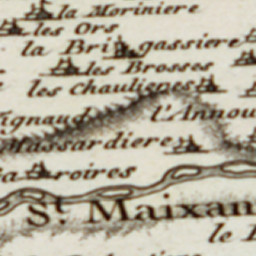 la Moriniere
les Ors
la Brigassiere
les Brosses
les Chaulienes
ignaud
l'Annou
Massardiere
roires
St. Maixan
le